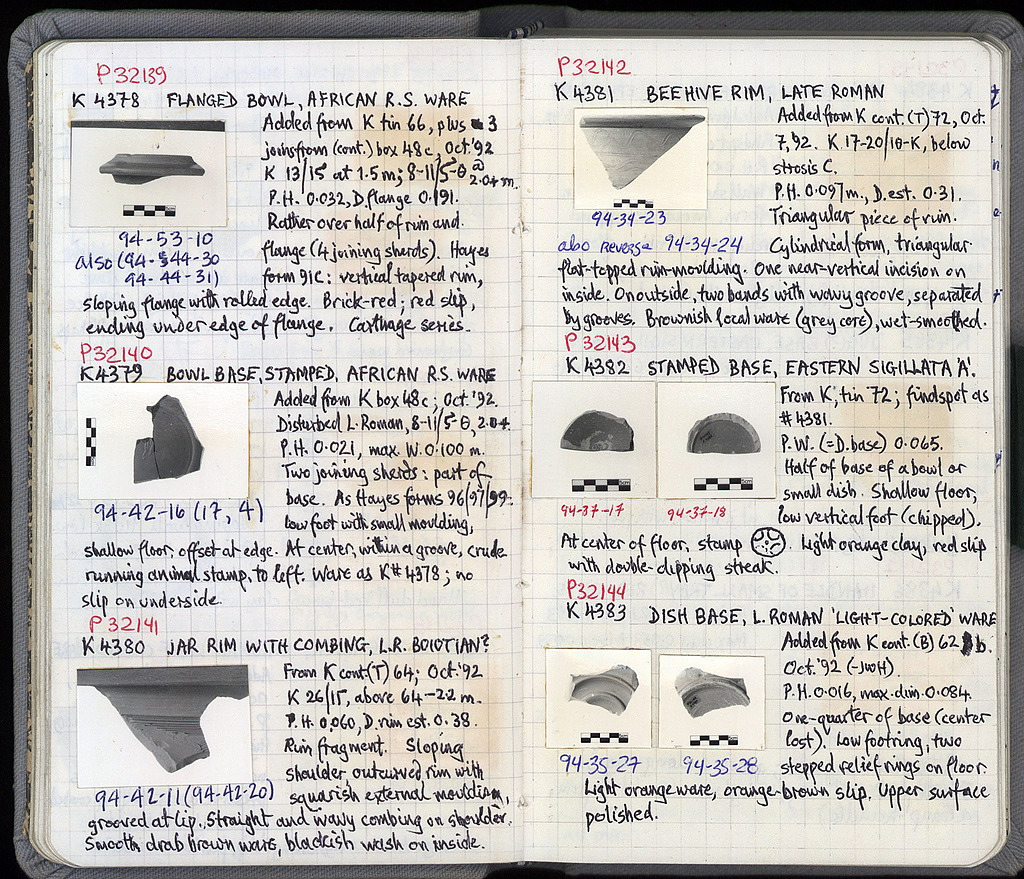 P 32139
K 4378 FLANGED BOWL, AFRICAN R.S. WARE
Added from K tin 66, plus 3
joins from (cont.) box 48c, Oct.'92
K 13/15 at 1.5m; 8-11/5-θ @
2.04 m.
P.H. 0.032, D. flange 0.191.
Rather over half of rim and
94-53-10
also (94-44-30
94-44-31)
flange (4 joining sherds). Hayes
form 91C: vertical tapered rim,
sloping flange with rolled edge. Brick-red; red slip,
ending under edge of flange. Carthage series.
P32140
K4379 BOWL BASE, STAMPED, AFRICAN R.S. WARE
Added from K box 48c; Oct.'92.
Disturbed L. Roman, 8-11/5-θ, 2.04
P.H. 0.021, max. W. 0.100 m.
Two joining sherds: part of
base. As Hayes forms 96/97/99:
94-42-16 (17, 4)
low foot with small moulding,
shallow floor, offset at edge. At center, within a groove, crude
running animal stamp, to left. Ware as K# 4378; no
slip on underside.
P 32141
K 4380 JAR RIM WITH COMBING, L.R. BOIOTIAN?
From K cont(T) 64; Oct.'92
K 26/15, above 64-22 m.
P.H. 0.060, D. rim est. 0.38.
Rim fragment. Sloping
shoulder, outcurved rim with
94-42-11 (94-42-20)
squarish external moulding,
grooved at lip. Straight and wavy combing on shoulder.
Smooth drab brown ware, blackish wash on inside.
P32142
K 4381 BEEHIVE RIM, LATE ROMAN
Added from K cont.(T) 72, Oct.
7, 92. K 17-20/10-K, below
strosis C.
P.H. 0.097 m., D. est. 0.31.
Triangular piece of rim.
94-34-23
also Reverse 94-34-24
Cylindrical form, triangular
flat-topped rim-moulding. One near-vertical incision on
inside. On outside, two bands with wavy groove, separated
by grooves. Brownish local ware (grey core), wet-smoothed.
P 32143
K 4382 STAMPED BASE, EASTERN SIGILLATA 'A'.
From K, tin 72; findspot as
# 4381.
P.W. (=D. base) 0.065.
Half of base of a bowl or
small dish. Shallow floor,
94-37-17 94-37-18
low vertical foot (chipped).
At center of floor, stamp. Light orange clay, red slip
with double-dipping streak.
P32144
K 4383 DISH BASE, L. ROMAN 'LIGHT-COLORED' WARE
Added from K cont. (B) 62 b.
Oct.'92 (-JWH)
P.H. 0.016, max. dim. 0.084.
One-quarter of base (center
lost). Low footring, two
94-35-27 94-35-28
stepped relief rings on floor.
Light orange ware, orange-brown slip. Upper surface
polished.